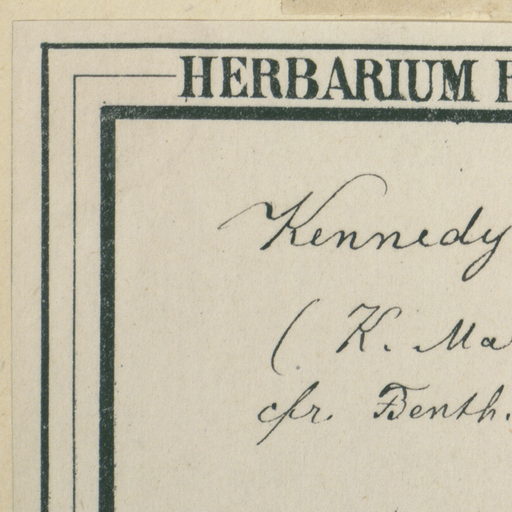 HERBARIUM
Kennedy
( K. Ma
cfr. Benth.